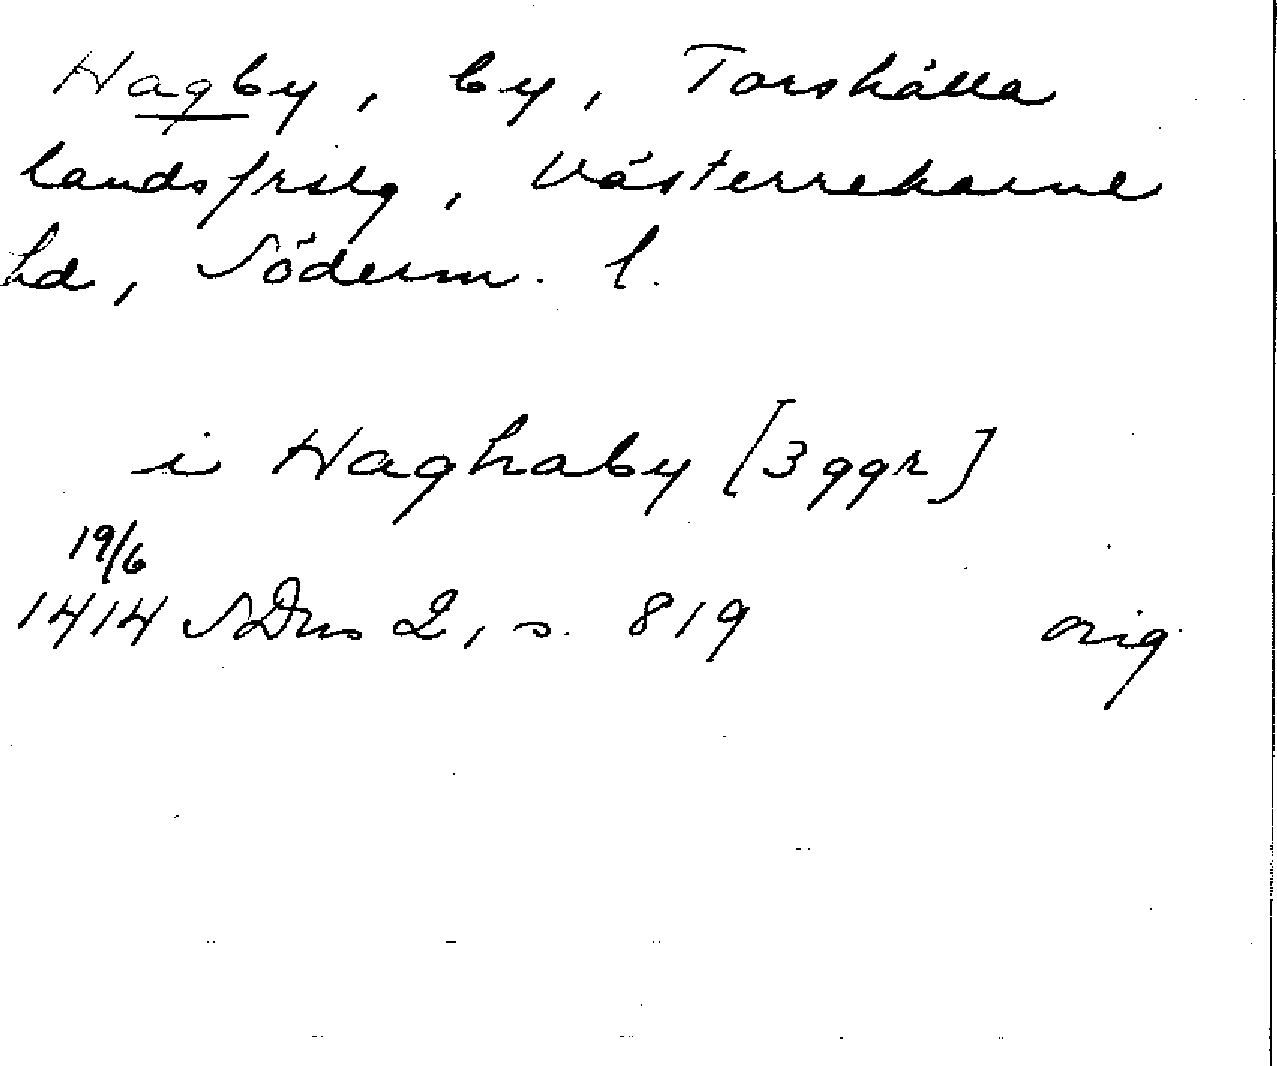 Hagby, by, Torshälla
landsfrslg, Västerrekarne
hd, Söderm. l.
i Haghaby [3 ggr]
19/6
1414 SDns 2, s. 819 orig.